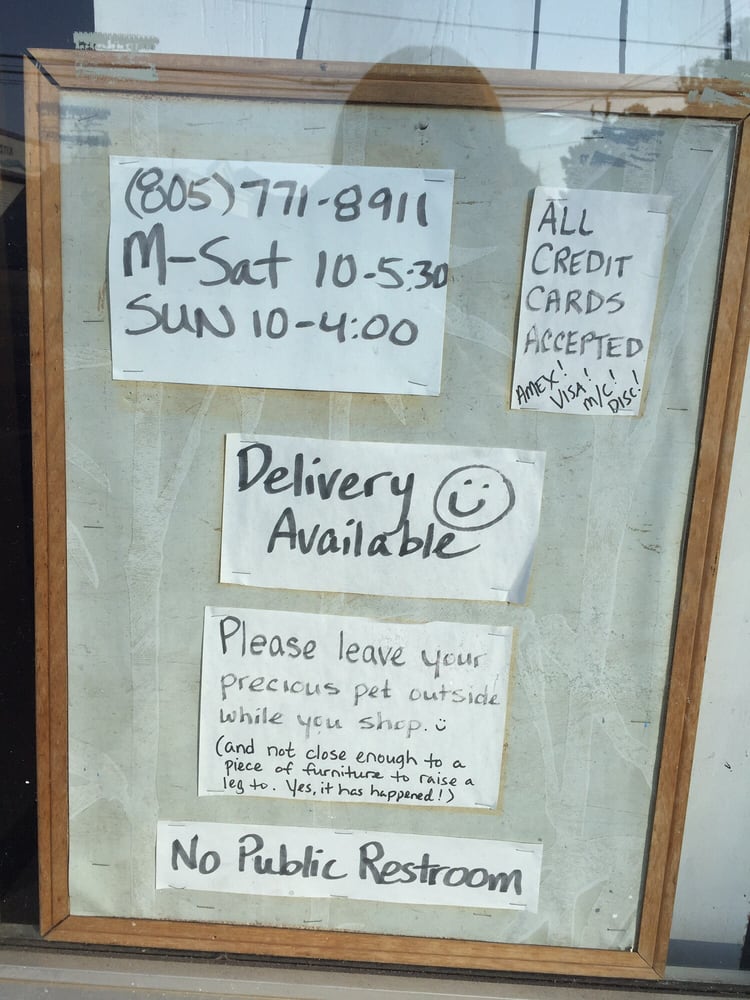 (805)771-8911
M-Sat 10-5:30
SUN 10-4:00
ALL
CREDIT
CARDS
ACCEPTED
AMEX! VISA! M/C! DISC!
Delivery
Available
Please leave your
precious pet outside
while you shop.
(and not close enough to a
piece of furniture to raise a
leg to. Yes, it has happened!)
No Public Restroom